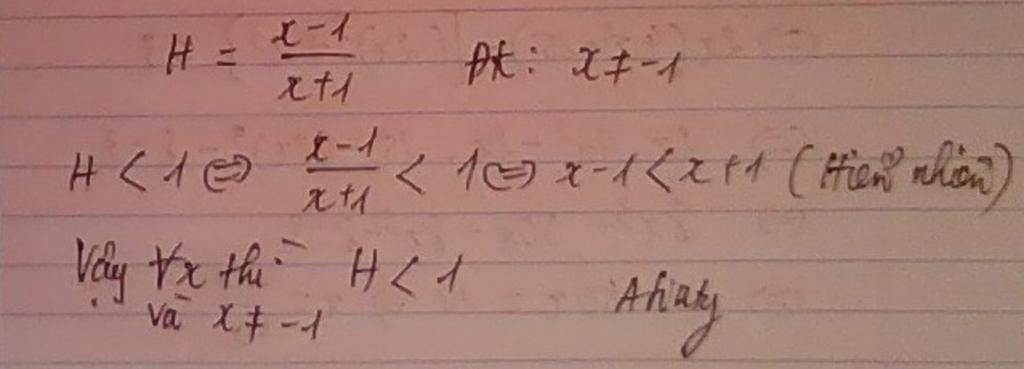 H = \frac{x-1}{x+1} Đk: x ≠ -1
H < 1 ⇔ \frac{x-1}{x+1} < 1 ⇔ x-1 < x+1 (Hiển nhiên)
Vậy ∀x thì H < 1
và x ≠ -1